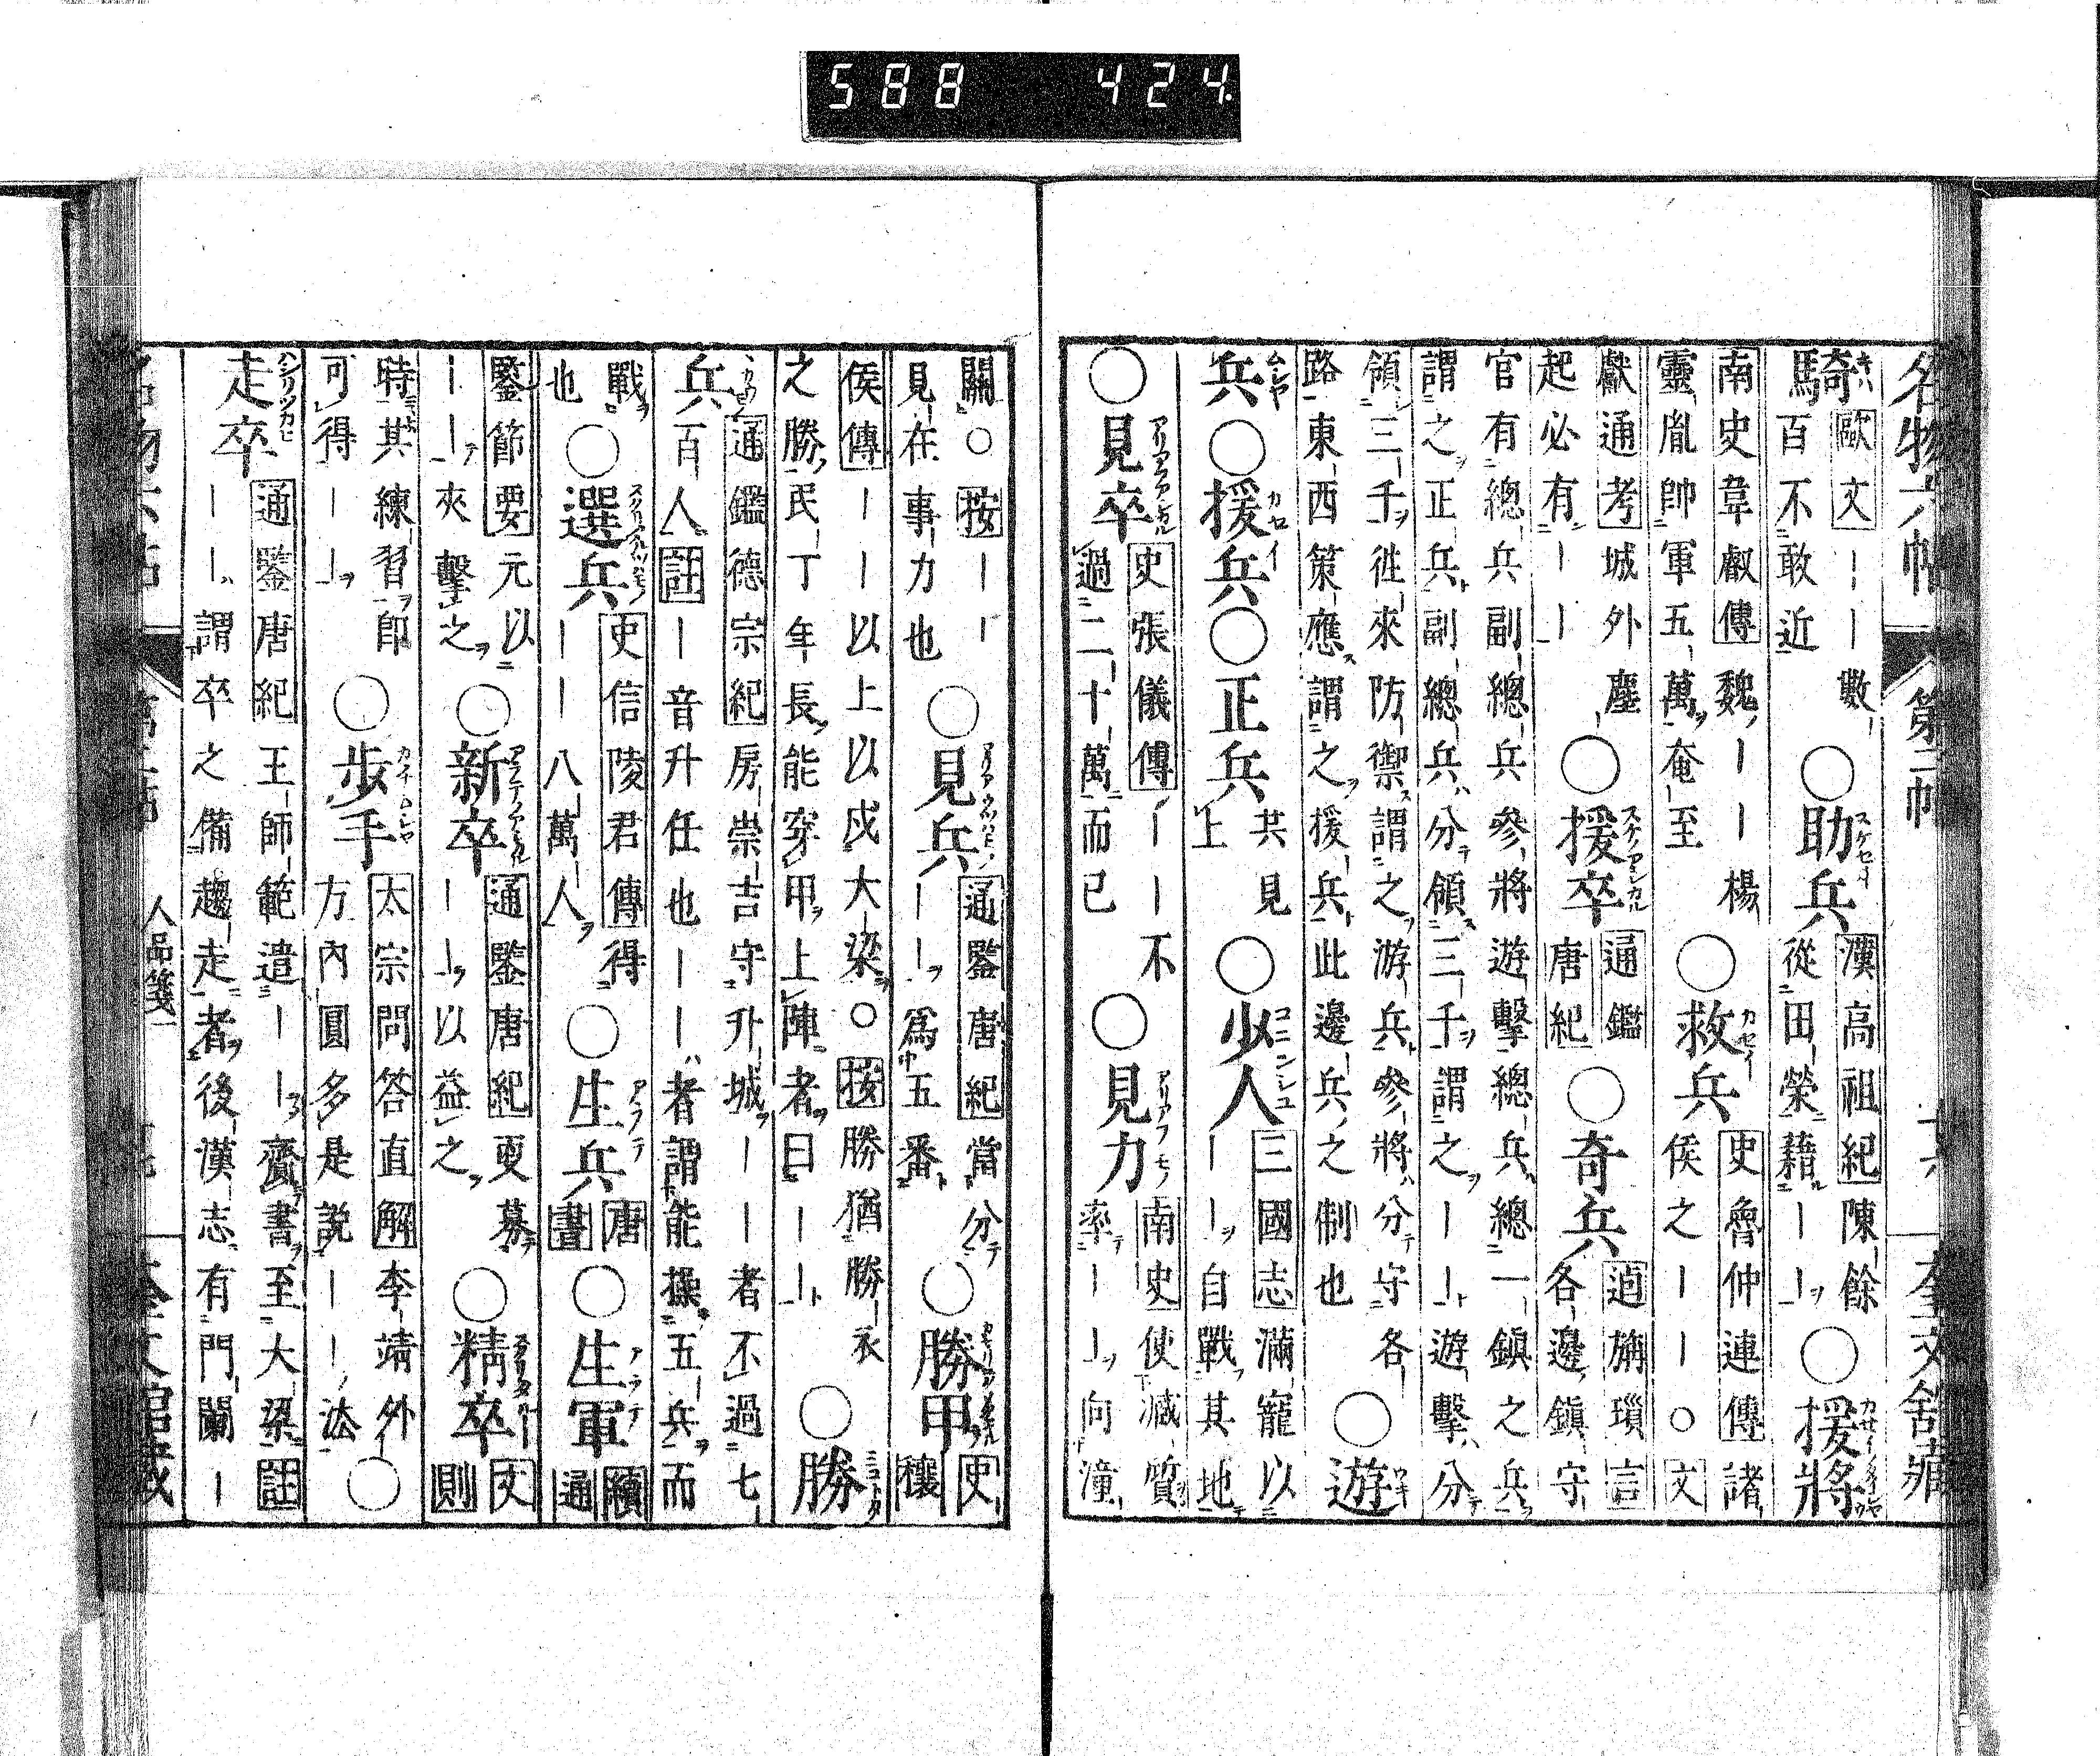 588 424
名物六帖 第二帖 十六 奎文舘藏
騎 歐文｜｜｜數百不敢近 ○助兵 漢高祖紀陳餘從田榮藉｜｜ ○援將
南史韋叡傳魏｜｜｜楊靈胤帥軍五萬奄至 ○救兵 史魯仲連傳諸侯之｜｜○文
獻通考城外塵起必有｜｜ ○援卒 通鑑唐紀 ○奇兵 逌旃瑣言各邊鎮守
官有總兵副總兵參將遊擊總兵總一鎮之兵謂之正兵副總兵分領三千謂之｜｜遊擊分
領三千徃來防禦謂之游兵參將分守各路東西策應謂之援兵此邊兵之制也 ○遊
兵 ○援兵 ○正兵 共見上 ○少人 三國志滿寵以｜｜自戰其地
○見卒 史張儀傳｜｜不過二十萬而已 ○見力 南史使減質率｜｜向潼
關○按｜｜見在事力也 ○見兵 通鑒唐紀當分｜｜爲五番 ○勝甲 史穰
侯傳｜｜以上以戍大梁○按勝猶勝衣之勝民丁年長能穿甲上陣者曰｜｜ ○勝
兵 通鑑德宗紀房崇吉守升城｜｜者不過七百人註｜音升任也｜｜者謂能操五兵而
戰也 ○選兵 史信陵君傳得｜｜八萬人 ○生兵 唐書 ○生軍 續通
鑒節要元以｜｜夾擊之 ○新卒 通鑒唐紀更募｜｜以益之 ○精卒 文則
時其練習即可得｜｜ ○歩手 太宗問答直解李靖外方內圓多是說｜｜法 ○
走卒 通鑒唐紀王師範遣｜｜齎書至大梁註｜｜謂卒之備趨走者後漢志有門闌｜
人品箋一